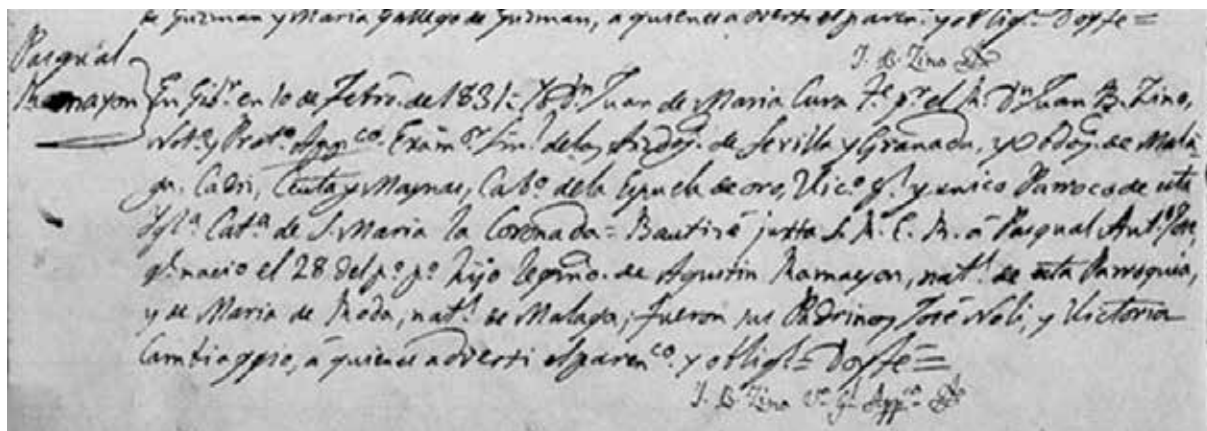 de Guzman y Maria Gallego de Guzman, a quienes adverti el paren.co y oblig.n Doy fe =
J. B. Zino
Pasqual
Ramayon
En Gib.r en 10 de Febro. de 1831 = Yo D.n Juan de Maria Cura T.e p.r el R. D.n Juan B. Zino,
Not.o y Prot.o App.co Exam.or Sin.l de los Arzdog. de Sevilla y Granada, y Obdog. de Mala-
ga, Cadiz, Ceuta y Maynas, Cab.o de la Espuela de oro, Vic.o g.l y unico Parroco de esta
Igl.a Cat.a de S. Maria la Coronada = Bautizé juxta S. R. E. R. á Pasqual Ant.o José,
q.e nacio el 28 del p.o p.o hijo legmo. de Agustin Ramayon, nat.l de esta Parroquia,
y de Maria de Reda, nat.l de Malaga; fueron sus Padrinos José Noli, y Victoria
Cambiaggio, á quienes adverti el paren.co y oblig.n = Doy fe =
J. B. Zino V.o G.l App.co